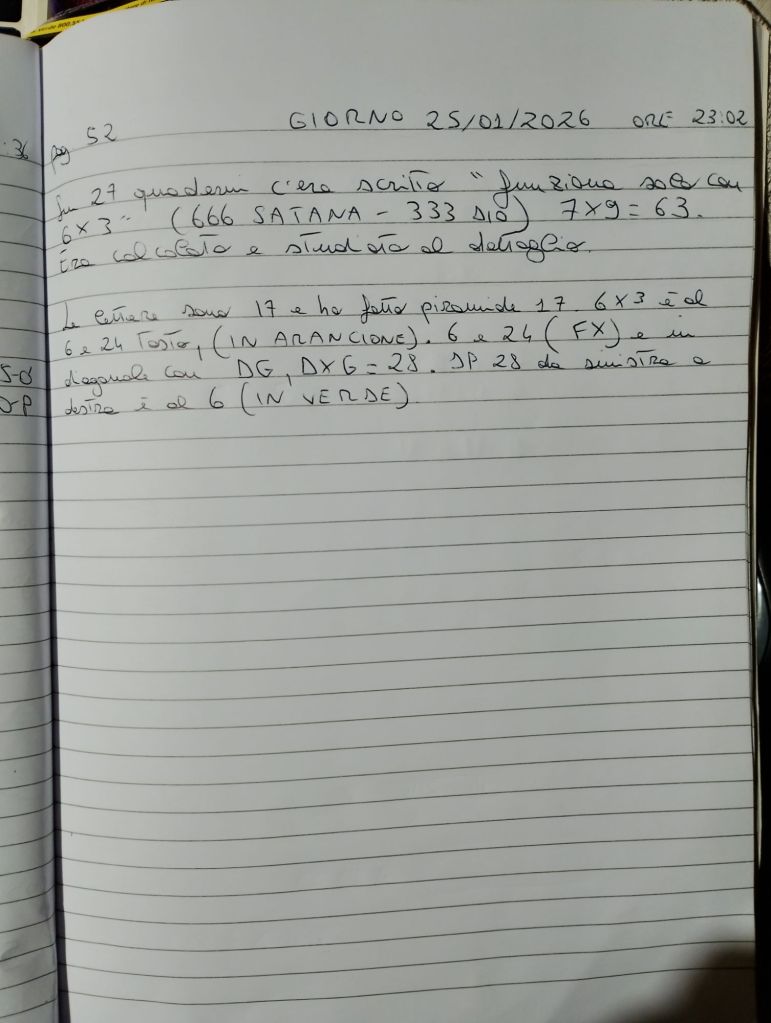 pag 52 GIORNO 25/01/2026 ORE 23:02
: 36
In 27 quaderni c'era scritto "funziona solo con
6x3" (666 SATANA - 333 DIO) 7x9 = 63.
Era calcolato e studiato al dettaglio.
Le lettere sono 17 e ho fatto piramide 17. 6x3 è al
6 e 24 Tasto, (IN ARANCIONE). 6 e 24 (FX) e in
diagonale con DG, DXG = 28. DP 28 da sinistra a
destra è al 6 (IN VERDE)